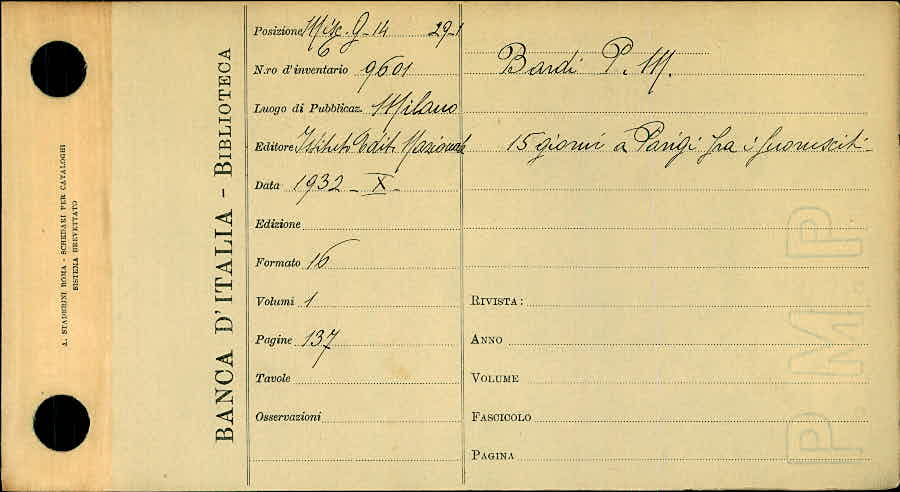 A. STADERINI ROMA - SCHEDARI PER CATALOGHI
SISTEMA BREVETTATO
BANCA D'ITALIA - BIBLIOTECA
Posizione Misc. G-14 29-1
N.ro d'inventario 9601
Luogo di Pubblicaz. Milano
Editore Istituto Edit. Nazionale
Data 1932 - X -
Edizione
Formato 16
Volumi 1
Pagine 137
Tavole
Osservazioni
Bardi P. M.
15 giorni a Parigi fra i fuorusciti -
RIVISTA:
ANNO
VOLUME
FASCICOLO
PAGINA
P. M. P.